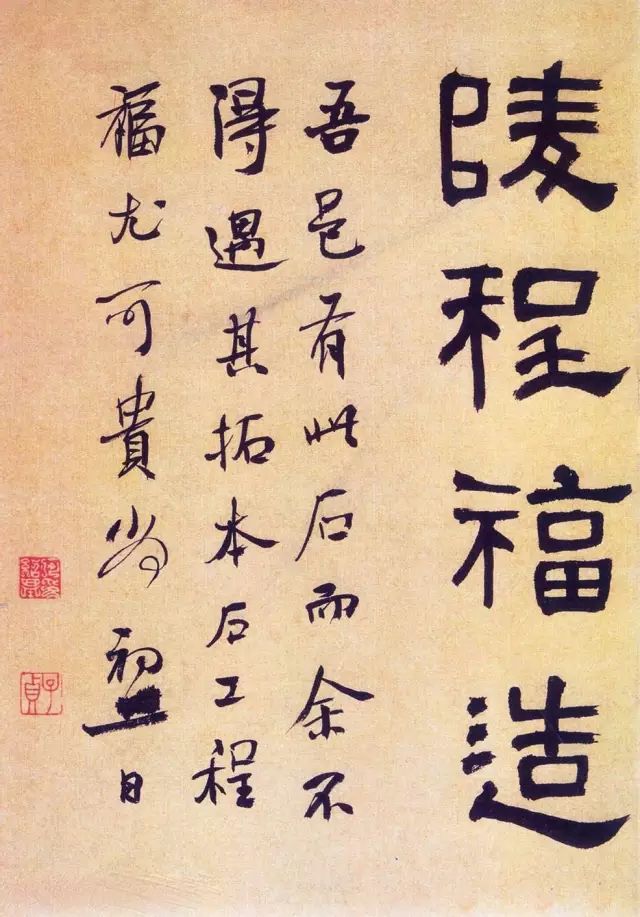 陵程福造
吾邑有此石而余不
得遇其拓本石工程
福尤可貴初日
子貞